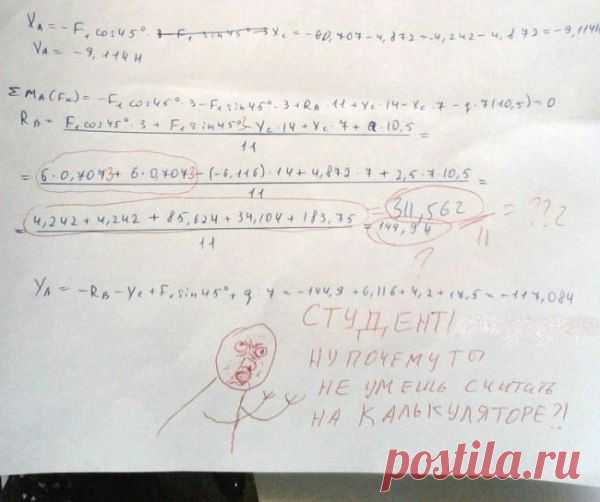 X_A = -F₁cos45° - F₁sin45°·3 X_C = -6·0,707-4,872=-4,242-4,872=-9,114H
X_A = -9,114H
ΣM_A(F_K) = -F₁cos45°·3-F₁sin45°·3+R_B·11+Y_C·14-X_C·7-q·7(10,5)=0
R_B = (F₁cos45°·3 + F₁sin45°·3 - Y_C·14 + X_C·7 + q·10,5) / 11 =
= (6·0,707·3 + 6·0,707·3 - (-6,116)·14 + 4,872·7 + 2,5·7·10,5) / 11 =
= (4,242 + 4,242 + 85,624 + 34,104 + 183,75) / 11 = 144,94 = 311,562 / 11 = ???
?
Y_A = -R_B - Y_C + F₁sin45° + q·7 = -144,9 + 6,116 + 4,2 + 17,5 = -117,084
СТУДЕНТ!
НУ ПОЧЕМУ ТЫ
НЕ УМЕШЬ СЧИТАТЬ
НА КАЛЬКУЛЯТОРЕ?!
postila.ru